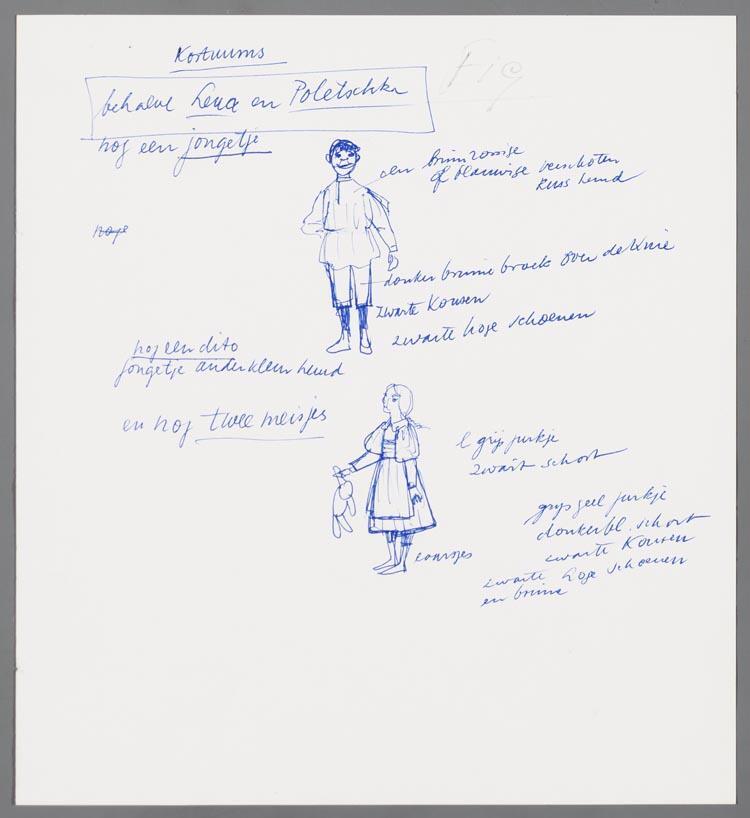 Kostuums
Fig
behalve Lena en Poletschka
nog een jongetje
een bruin roossige
of blauwige verschoten
Russ hemd
donker bruine broek over de knie
zwarte Kousen
zwarte hoge schoenen
nog een dito
jongetje ander kleur hemd
en nog twee meisjes
1 grijs jurkje
zwart schort
grijs geel jurkje
donkerbl. schort
zwarte Kousen
zwarte hoge schoenen
en bruine
laarsjes